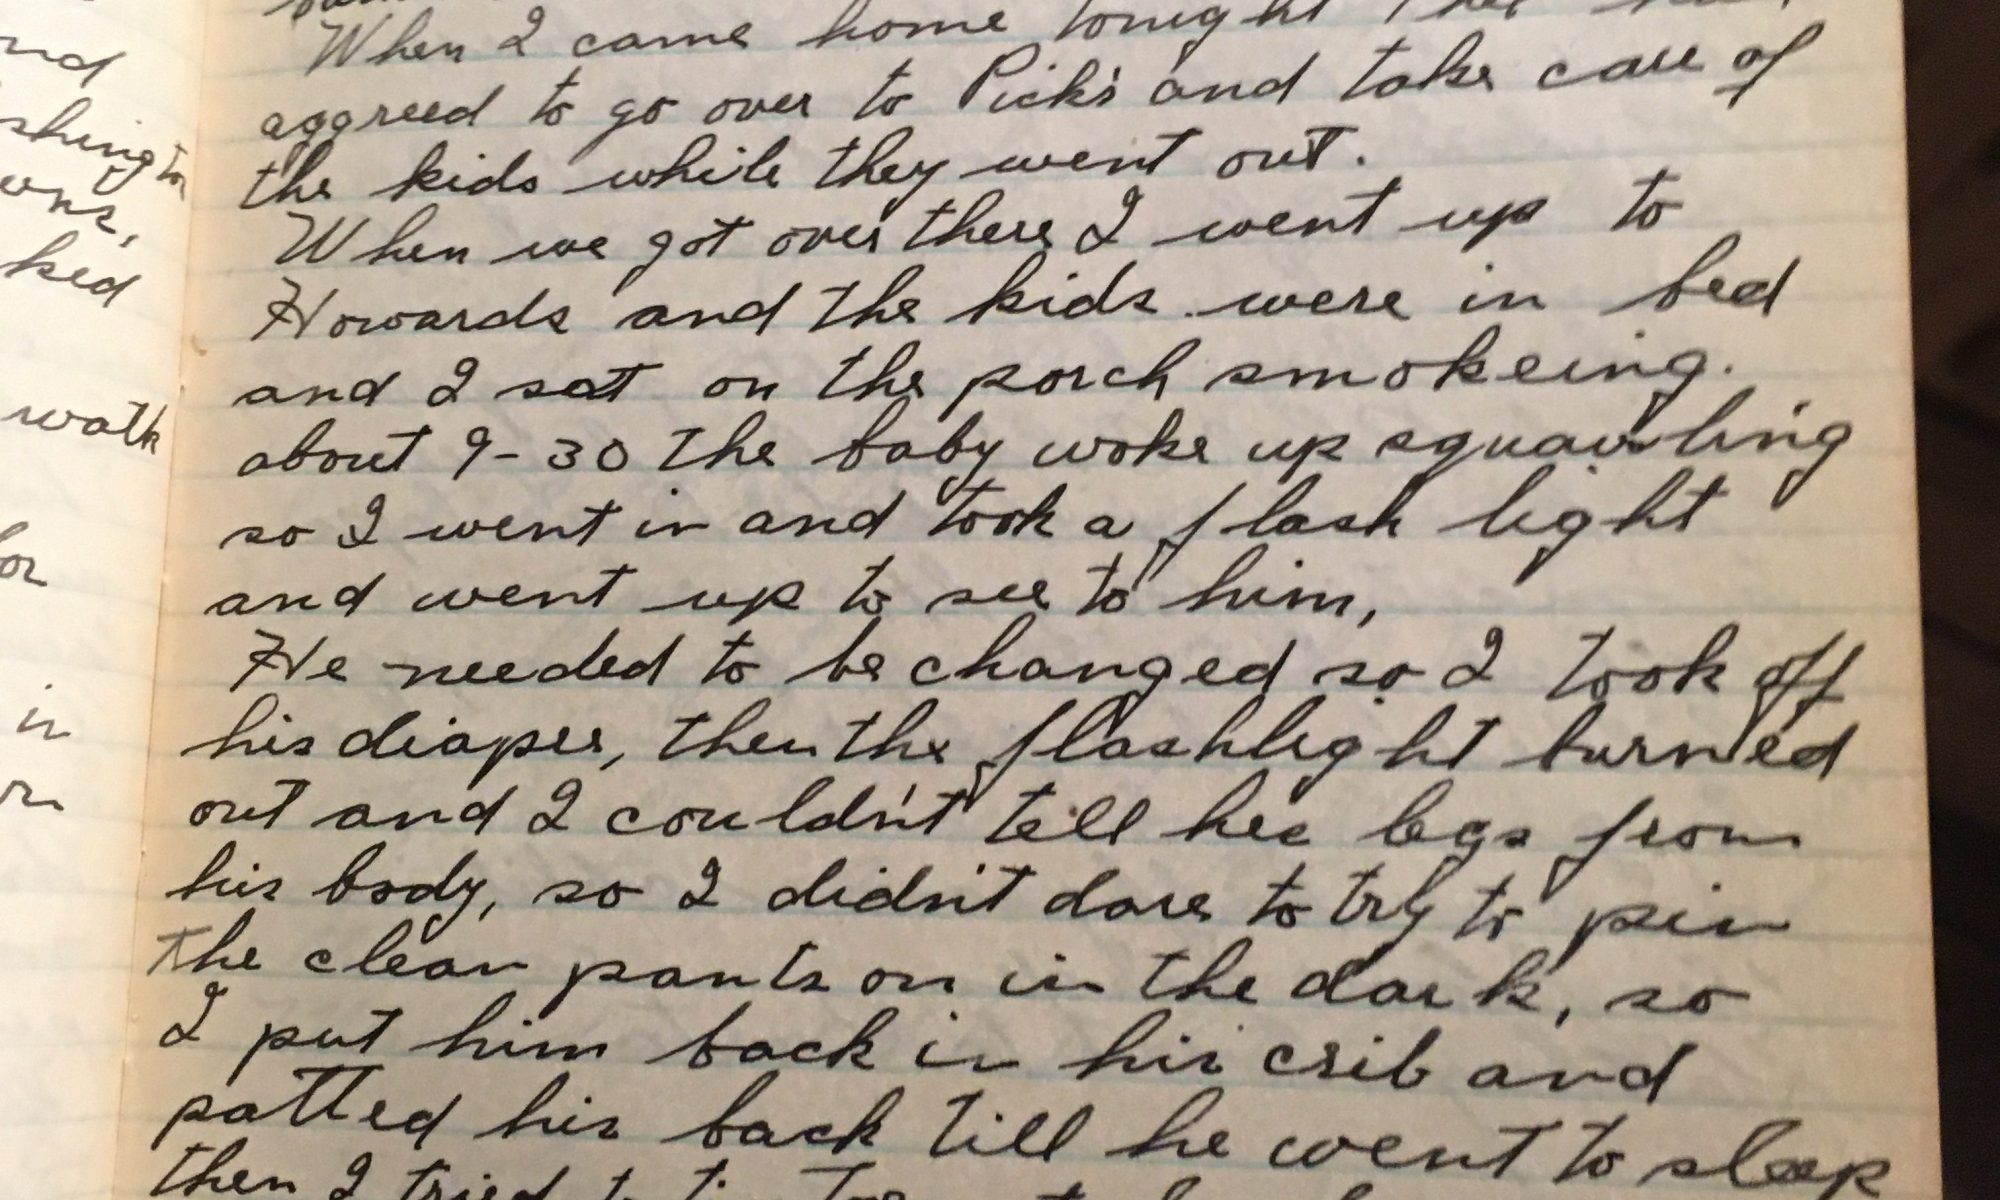 nd
shington
ons,
ked
walk
for
in
When I came home tonight
aggreed to go over to Pick's and take care of
the kids while they went out.
When we got over there I went up to
Howards and the kids were in bed
and I sat on the porch smokeing.
about 9-30 the baby woke up squawling
so I went in and took a flash light
and went up to see to him,
He needed to be changed so I took off
his diaper, then the flashlight burned
out and I couldn't tell his legs from
his body, so I didn't dare to try to pin
the clean pants on in the dark, so
I put him back in his crib and
patted his back till he went to sleep
then I tried to